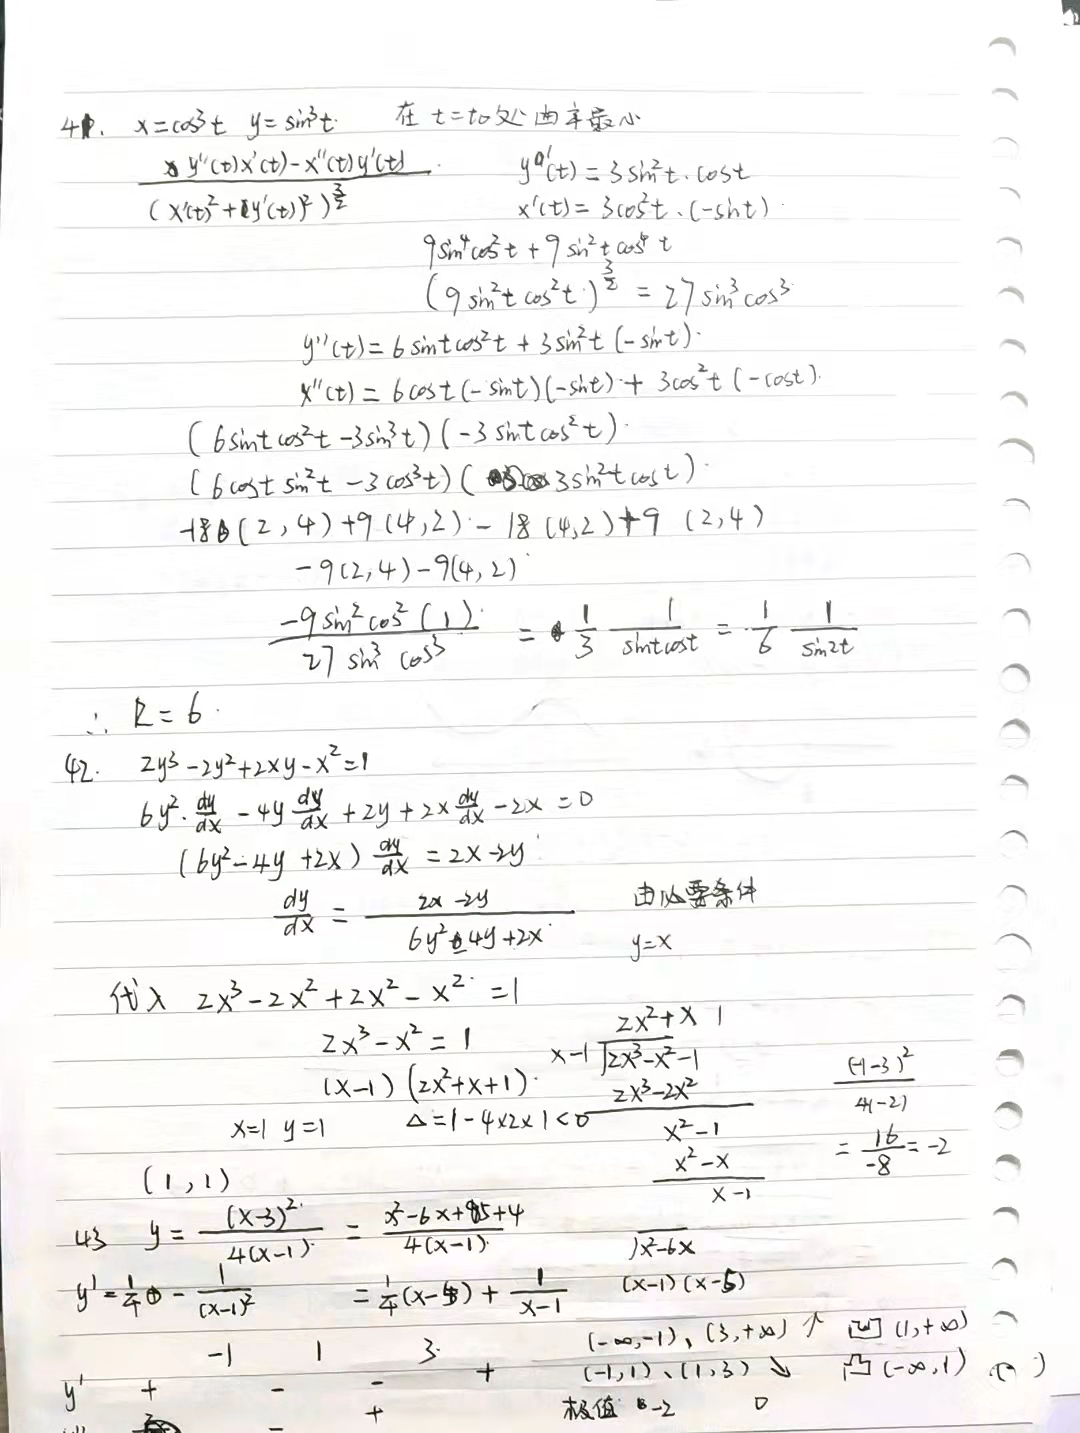 41. x=cos³t y=sin³t. 在 t=t₀处曲率最小
y''(t)x'(t)-x''(t)y'(t) / (x'(t)²+(y'(t))²)^(3/2)
y'(t)=3sin²t·cost
x'(t)=3cos²t·(-sint)
9sin⁴cos²t+9sin²tcos⁴t
(9sin²tcos²t)^(3/2) = 27sin³cos³
y''(t)=6sintcos²t+3sin²t(-sint).
x''(t)=6cost(-sint)(-sint)+3cos²t(-cost).
(6sintcos²t-3sin³t)(-3sintcos²t).
(6costsin²t-3cos³t)(3sin²tcost).
-18(2,4)+9(4,2)-18(4,2)+9(2,4)
-9(2,4)-9(4,2)
-9sin²cos²(1) / 27sin³cos³ = 1/3 1/sintcost = 1/6 1/sin2t
∴ R=6.
42. 2y³-2y²+2xy-x²=1
6y²·dy/dx-4y dy/dx+2y+2x dy/dx-2x=0
(6y²-4y+2x) dy/dx=2x-2y
dy/dx = 2x-2y / 6y²-4y+2x
由必要条件
y=x
代入 2x³-2x²+2x²-x²=1
2x³-x²=1
(x-1)(2x²+x+1).
x=1 y=1 Δ=1-4×2×1<0
(1,1)
2x²+x 1
x-1 2x³-x²-1
2x³-2x²
x²-1
x²-x
x-1
(-1-3)² / 4(-2)
= 16/-8 = -2
43 y= (x-3)² / 4(x-1) = x²-6x+5+4 / 4(x-1)
x²-6x
y'=1/4 - 1/(x-1)² = 1/4(x-5)+ 1/x-1 (x-1)(x-5)
-1 1 3.
(-∞,-1)、(3,+∞) ↑ 凹 (1,+∞)
(-1,1)、(1,3) ↘ 凸 (-∞,1)
y' + - - +
- +
极值 -2 0